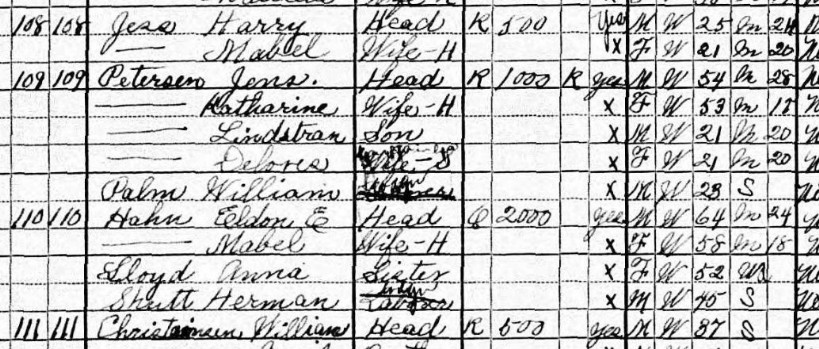 108 108 Jess Harry Head R 500 Yes M W 25 M 24
Mabel Wife-H X F W 21 M 20
109 109 Petersen Jens. Head R 1000 R Yes M W 54 M 28
Katharine Wife-H X F W 53 M
Lindstran Son X M W 21 M 20
Delores Wife-S X F W 21 M 20
Palm William X M W 23 S
110 110 Hahn Eldon E Head O 2000 Yes M W 64 M 24
Mabel Wife-H X F W 58 M 18
Lloyd Anna Sister X F W 52
Shutt Herman X M W 45 S
111 111 William Head R 500 Yes M W 37 S